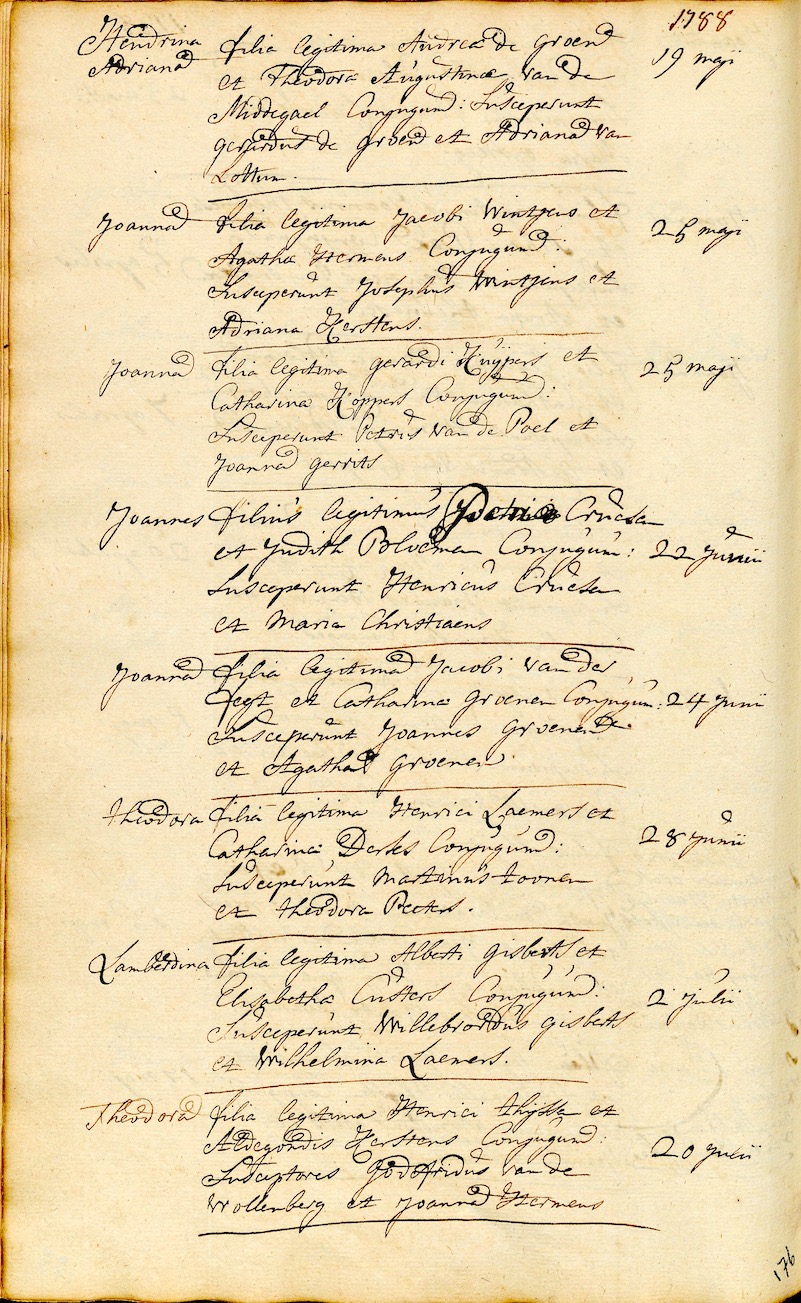 1788
Hendrina filia legitima Andreæ de Groen
Adriana et Theodora Augustinæ van de 19 maji
Middegael Conjugum: Susceperunt
gerardus de groen et Adriana van
Lottum.
Joanna filia legitima Jacobi Wintjens et 25 maji
Agatha Hermens Conjugum:
Susceperunt Josephus Wintjens et
Adriana Kerstens.
Joanna filia legitima gerardi Kuijpers et 25 maji
Catharina Koppers Conjugum:
Susceperunt Petrus van de Poel et
Joanna gerrits
Joannes filius legitimus Cruesen
et Judith Bloemen Conjugum: 22 Junii
Susceperunt Henricus Cruesen
et Maria Christiaens
Joanna filia legitima Jacobi van der
et Catharina Groenen Conjugum: 24 Junii
Susceperunt Joannes Groenen
et Agatha Groenen
theodora filia legitima Henrici Laemers et
Catharina Derks Conjugum: 28 Junii
Susceperunt Martinus toonen
et theodora Peeters.
Lamberdina filia legitima Alberti gisberts et
Elisabetha Custers Conjugum: 2 Julii
Susceperunt Willebrordus gisberts
et Wilhelmina Laemers.
Theodora filia legitima Henrici thijssen et
Aldegondis Kerstens Conjugum: 20 Julii
Susceptores Godfridus van de
Wollenberg et Joanna Hermens
176